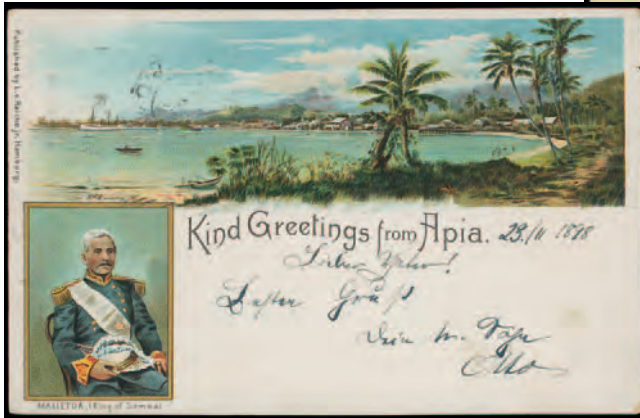 Published by L. v. Reiche jr. Hamburg.
Kind Greetings from Apia. 23./11 1898
Bester Gruß
Dein
Otto
MALIETOA, (King of Samoa)